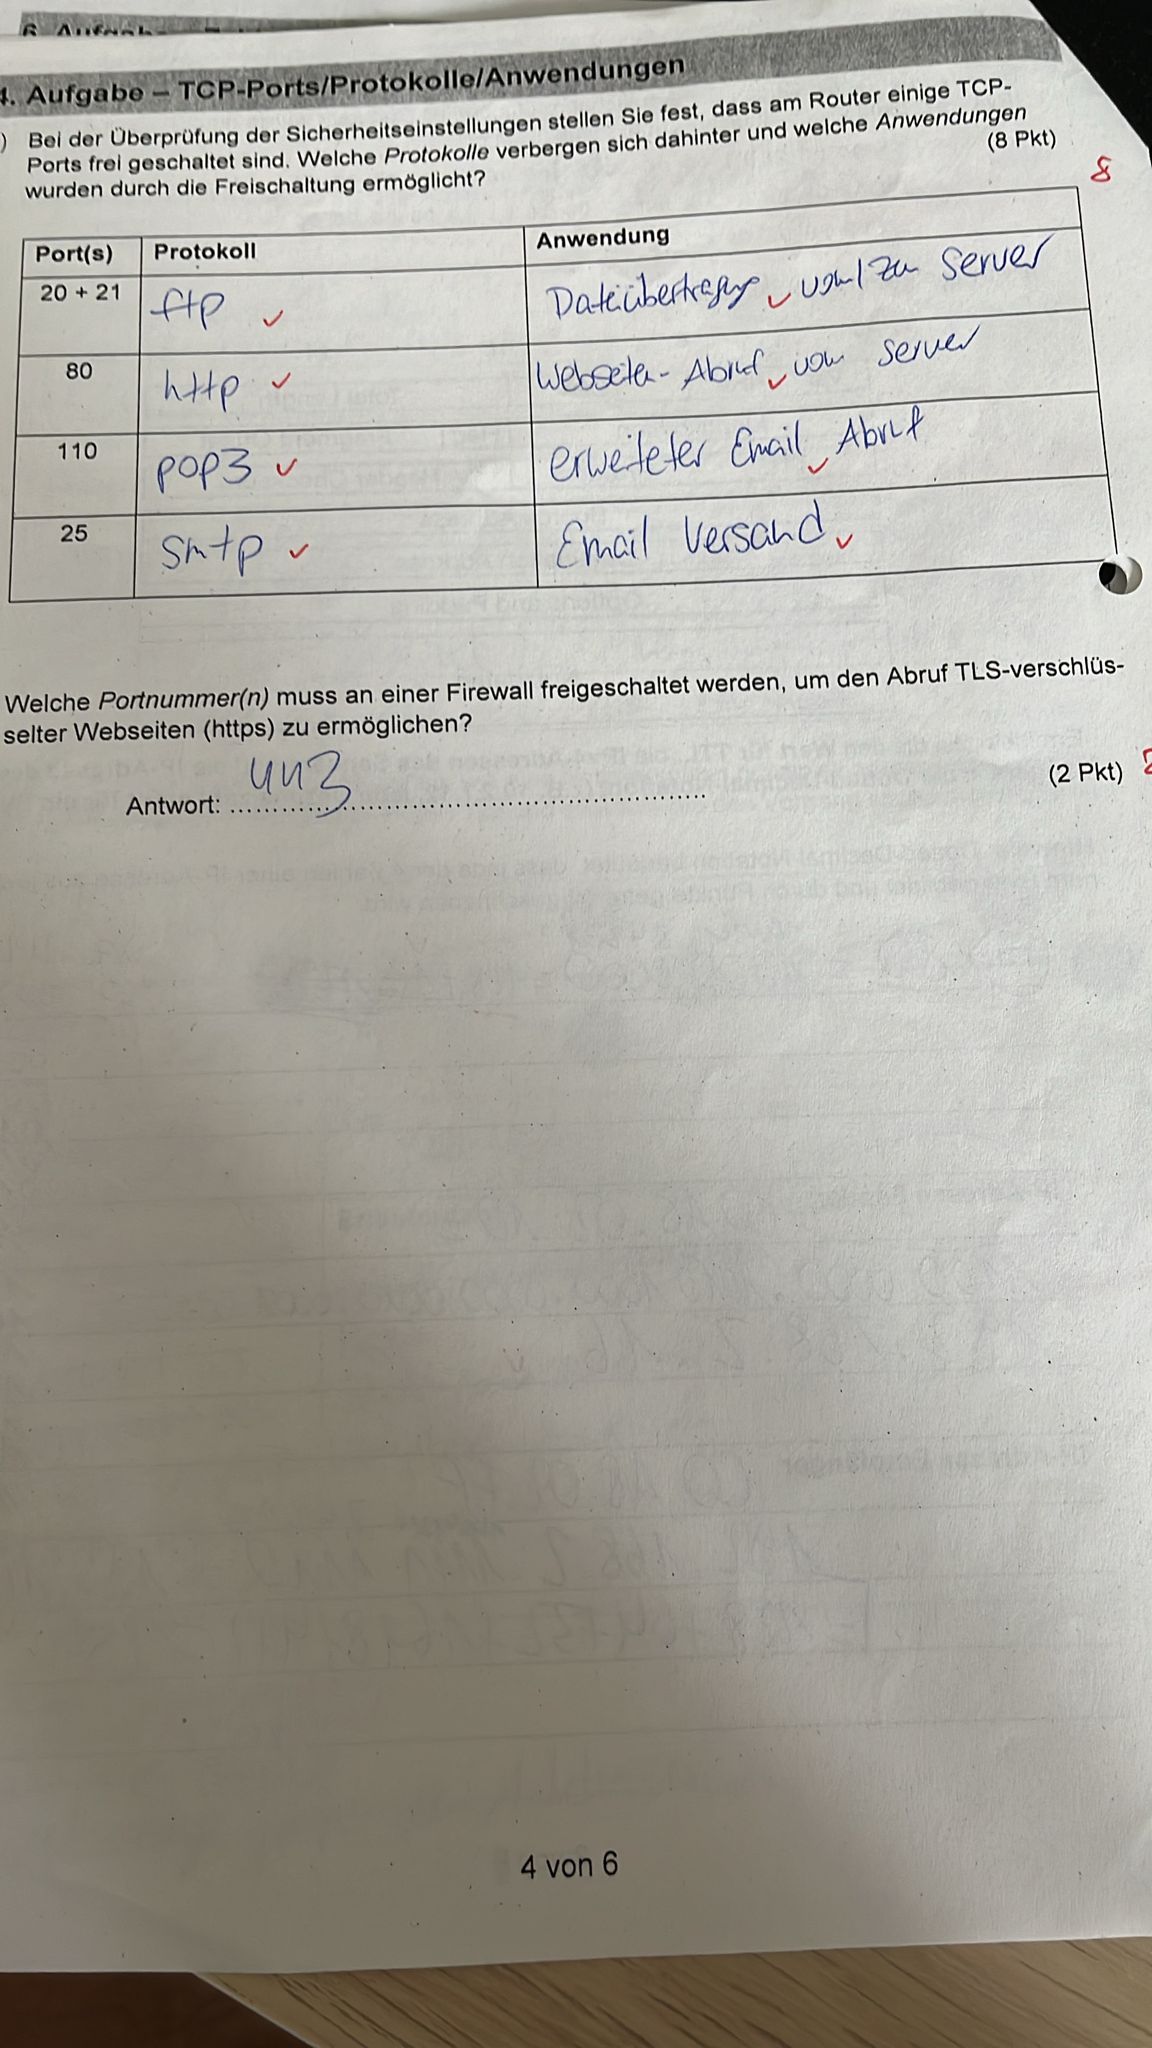 4. Aufgabe – TCP-Ports/Protokolle/Anwendungen
) Bei der Überprüfung der Sicherheitseinstellungen stellen Sie fest, dass am Router einige TCP-
Ports frei geschaltet sind. Welche Protokolle verbergen sich dahinter und welche Anwendungen
wurden durch die Freischaltung ermöglicht? (8 Pkt)
8
Port(s) Protokoll Anwendung
20 + 21 ftp Dateiübertragung vom/zu Server
80 http Webseiten-Abruf vom Server
110 pop3 erweiteter Email Abruf
25 smtp Email Versand
Welche Portnummer(n) muss an einer Firewall freigeschaltet werden, um den Abruf TLS-verschlüs-
selter Webseiten (https) zu ermöglichen?
(2 Pkt) 2
Antwort: 443
4 von 6